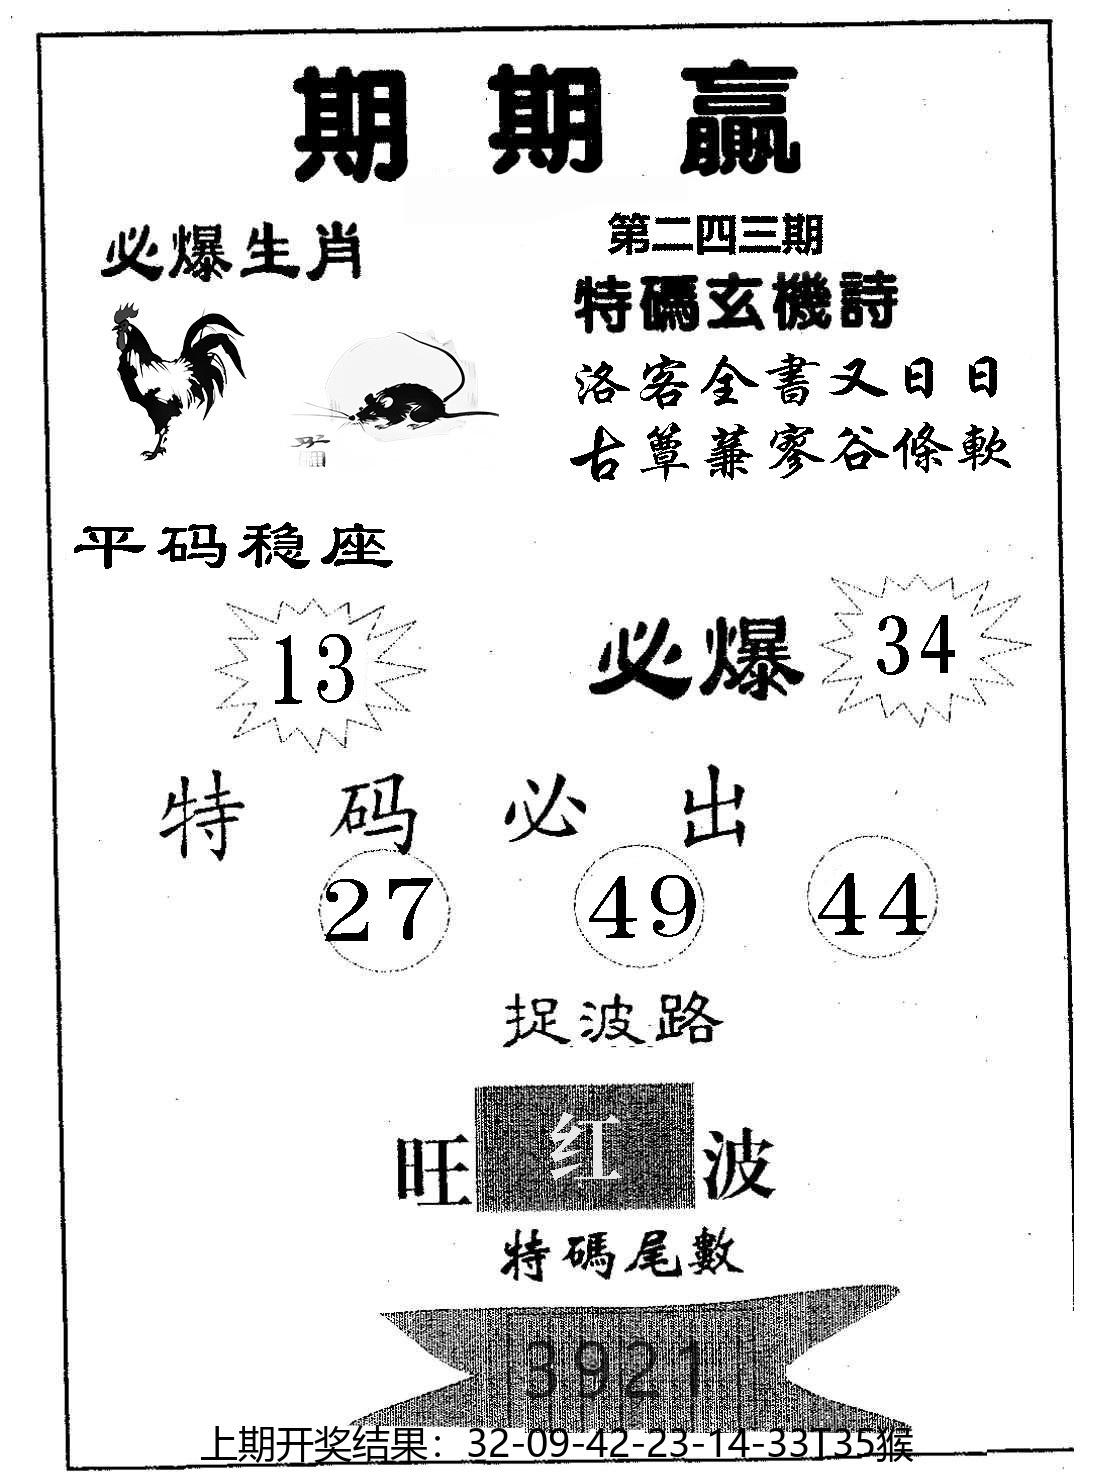 期期贏
必爆生肖
第二四三期
特碼玄機詩
洛客全書又日日
古蕈蒹寥谷條軟
平码稳座
13
必爆
34
特码必出
27 49 44
捉波路
旺红波
特碼尾數
3921
上期开奖结果：32-09-42-23-14-33T35猴